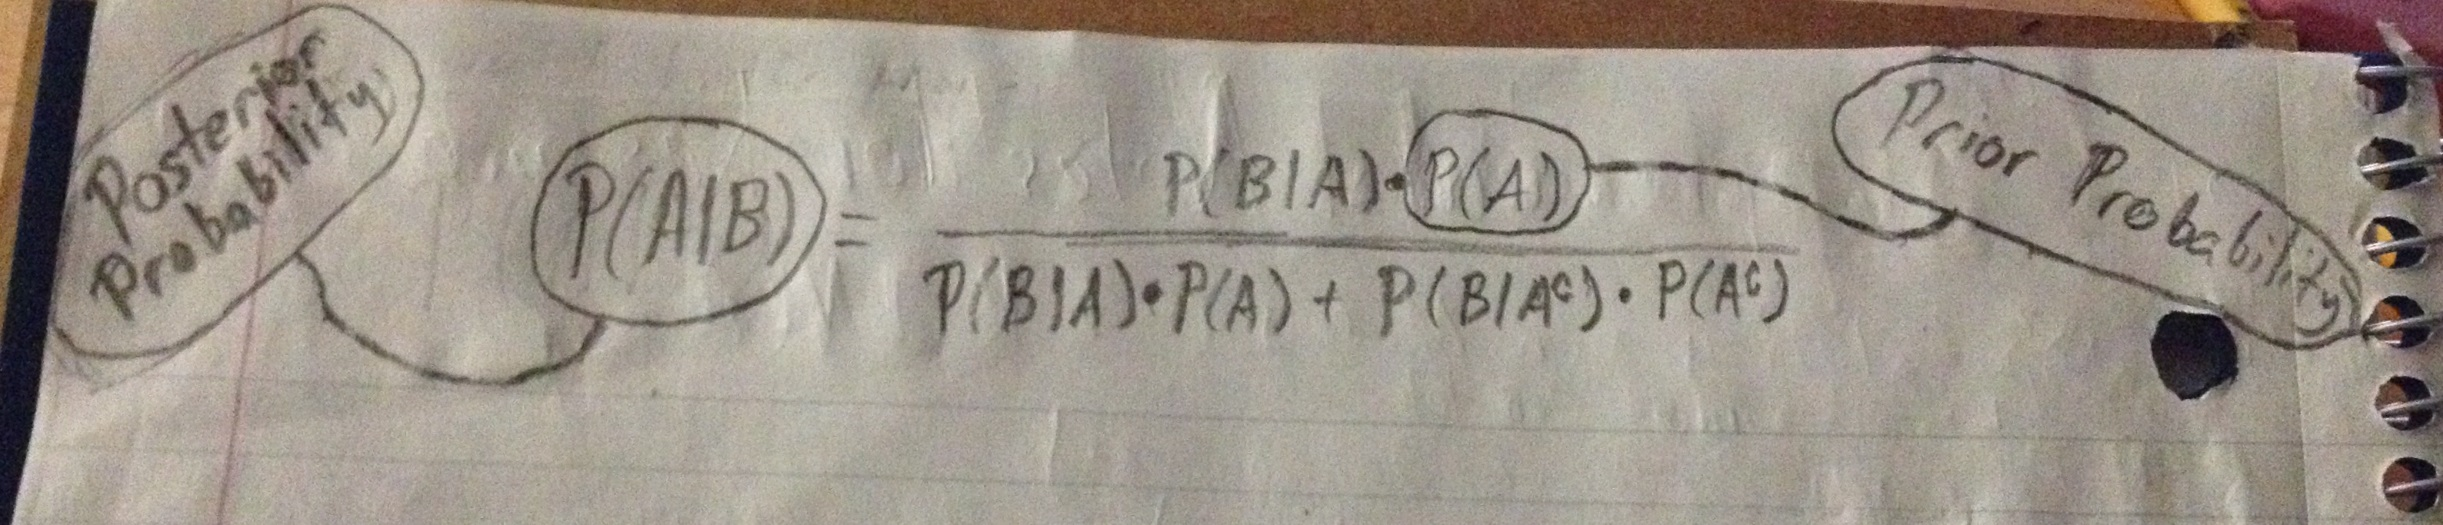 Posterior
Probability
P(A|B) =
P(B|A)•P(A)
P(B|A)•P(A) + P(B|Aᶜ)•P(Aᶜ)
Prior Probability